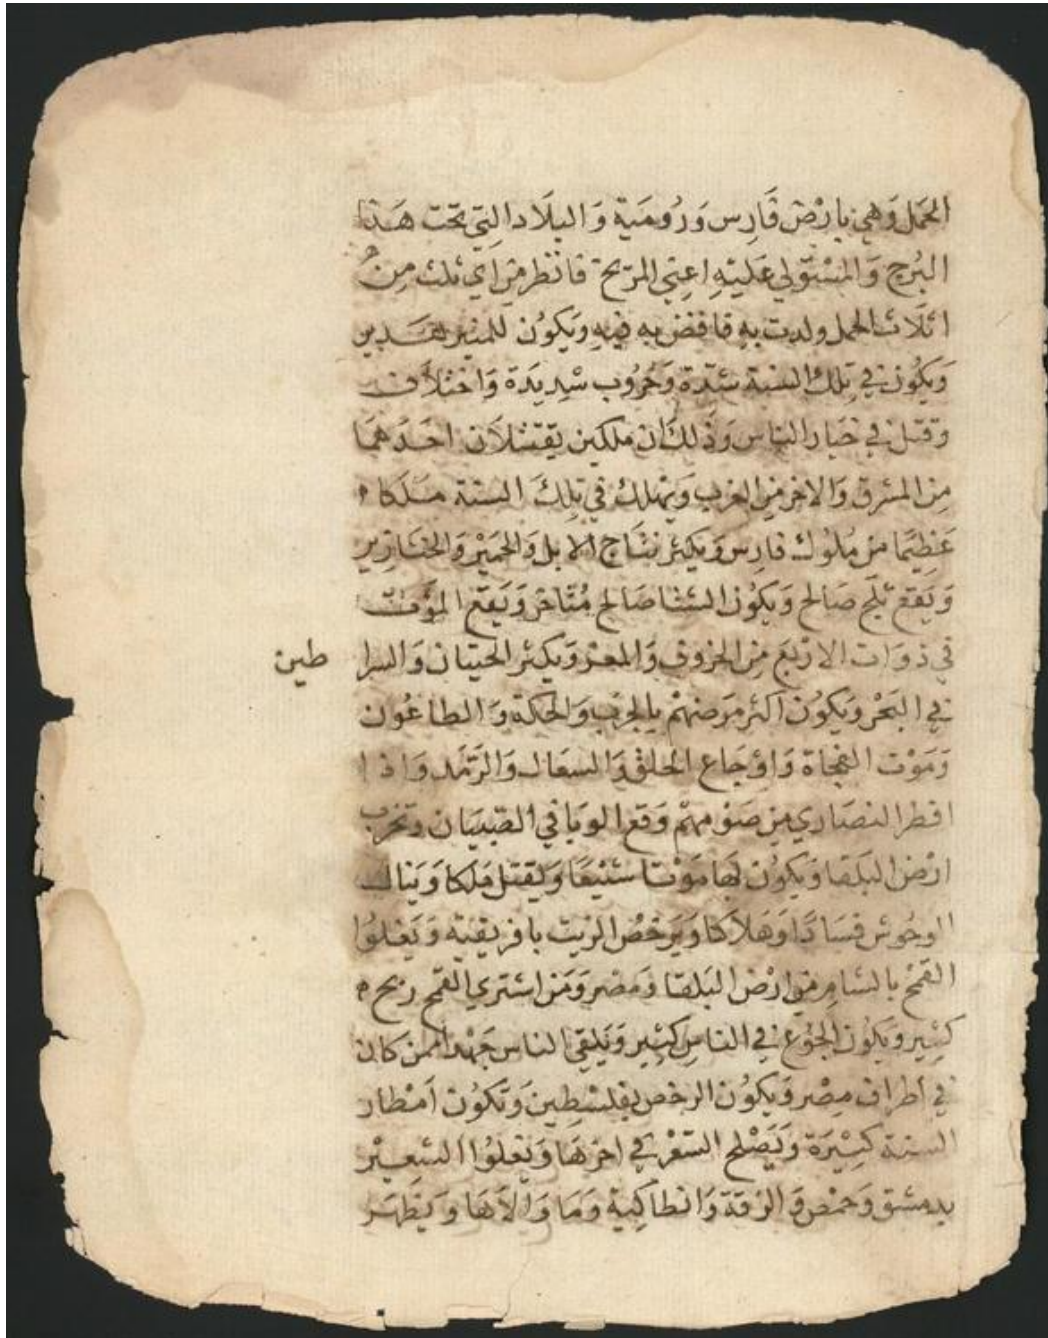 الحمَل وَهي بارْض فَارِس وَرُوميَة وَ البلَاد التِي تحت هَذا
البُرج وَ المسْتَولي عَليْهِ اعني المرّيخ فانظر مِن اي ثلث مِن
اثلَاث الحمل ولدت بهِ فاقض به فيهِ وَيكوُن للمنير
وَيكُون في تلك السنة شدّة وَحُرُوب شدِيدَة وَاختلاف
وَقتل في خيار الناس وَذلك ان ملكين يقتتلاَن احَدهمَا
مِن المشرق وَالاخر من الغرب وَيهلك في تلِكَ السنة مَلكا
عَظِيمًا من مُلوك فارِس وَيكثر نتَاج الابل وَالحمير وَالخنَازير
وَيقع ثلج صَالح وَيكوُن الشتا صَالح مُتاخر وَيقع المَوْت
في ذوَات الارْبَع مِن الخروف وَالمعز وَيكثر الحيتان وَالسرا طين
في البَحْر وَيكوُن اكثر مَرَضهمْ بالجرَب وَالحكة وَ الطاعُون
وَمَوْت الفجاة وَاوْجَاع الحلق وَالسعال وَالرّمَد وَاذا
افطر النصَاري مِن صَوْمهمْ وَقع الوبا في الصّبيَان وتخرَب
ارْض البَلقا وَيكوُن لهَا مَوْتا شنيعًا وَيقتل مَلكا وَينال
الوحُوش فسَادًا وَهَلاَكا وَيَرخصُ الزيت بافريقية وَيَغلوُا
القمْح بالشام مِن ارْض البَلقا وَمصر وَمَن اشتري القمح ربح
كثِير وَيكوُن الجوُع في الناس كثِير وَيَلقي الناس جَهْدا ممن كان
في اطراف مِصْر وَيكوُن الرخص بفلسْطِين وَتكوُن امْطار
السنة كثيْرَة وَيَصْلح السّعْر في اخرهَا وَيَغلوُا الشعيْر
بدمشق وَحمْص وَالرقة وَانطاكية وَمَا وَالاَهَا وَيَظهَر